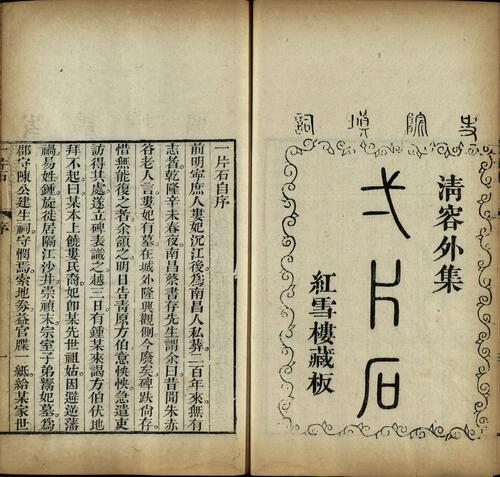 史院填詞
清容外集
弌片石
紅雪樓藏板
一片石自序
前明寧庶人婁妃沉江後。為南昌人私葬。二百年來無有
志者。乾隆辛未春夜。南昌蔡書存先生謂余曰。昔聞朱赤
谷老人言。婁妃有墓。在城外隆興觀側。今廢矣。碑趺尚存。
惜無能復之者。余頷之。明日告青原方伯。意怏怏。急遣吏
訪得其處。遂立碑表識之。越三日。有鍾某來謁方伯。伏地
拜不起。曰某本上饒婁氏裔。妃即某先世祖姑。因避逆藩
禍。易姓鍾。旋徙居隔江沙井。崇禎末。宗室子弟鬻妃墓。為
郡守陳公建生祠。守憫焉。索地券益官牒一紙。給某家世
序